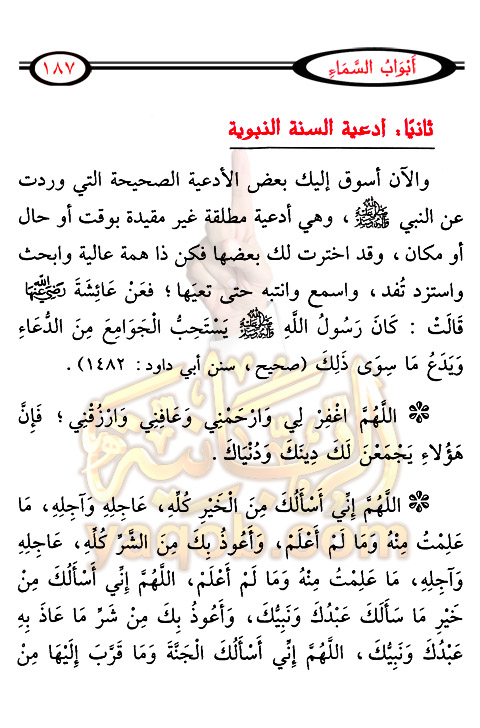 أَبْوَابُ السَّمَاءِ
١٨٧
ثانيًا: أدعية السنة النبوية
والآن أسوق إليك بعض الأدعية الصحيحة التي وردت
عن النبي ﷺ، وهي أدعية مطلقة غير مقيدة بوقت أو حال
أو مكان، وقد اخترت لك بعضها فكن ذا همة عالية وابحث
واستزد تُفد، واسمع وانتبه حتى تعيَها؛ فعَنْ عَائِشَةَ رَضِيَ اللَّهُ عَنْهَا
قَالَتْ: كَانَ رَسُولُ اللَّهِ ﷺ يَسْتَحِبُّ الْجَوَامِعَ مِنَ الدُّعَاءِ
وَيَدَعُ مَا سِوَى ذَلِكَ (صحيح، سنن أبي داود: ١٤٨٢).
❁ اللَّهُمَّ اغْفِرْ لِي وَارْحَمْنِي وَعَافِنِي وَارْزُقْنِي؛ فَإِنَّ
هَؤُلاءِ يَجْمَعْنَ لَكَ دِينَكَ وَدُنْيَاكَ.
❁ اللَّهُمَّ إِنِّي أَسْأَلُكَ مِنَ الْخَيْرِ كُلِّهِ، عَاجِلِهِ وَآجِلِهِ، مَا
عَلِمْتُ مِنْهُ وَمَا لَمْ أَعْلَمْ، وَأَعُوذُ بِكَ مِنَ الشَّرِّ كُلِّهِ، عَاجِلِهِ
وَآجِلِهِ، مَا عَلِمْتُ مِنْهُ وَمَا لَمْ أَعْلَمْ، اللَّهُمَّ إِنِّي أَسْأَلُكَ مِنْ
خَيْرِ مَا سَأَلَكَ عَبْدُكَ وَنَبِيُّكَ، وَأَعُوذُ بِكَ مِنْ شَرِّ مَا عَاذَ بِهِ
عَبْدُكَ وَنَبِيُّكَ، اللَّهُمَّ إِنِّي أَسْأَلُكَ الْجَنَّةَ وَمَا قَرَّبَ إِلَيْهَا مِنْ